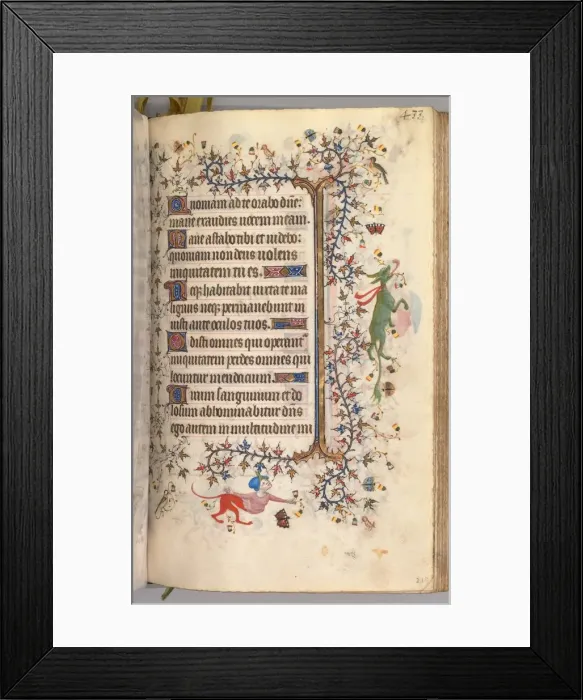 Quoniam ad te orabo dñe:
mane exaudies uocem meam.
Mane astabo tibi et uidebo:
quoniam non deus uolens
iniquitatem tu es.
Neqȝ habitabit iuxta te ma
lignus neqȝ permanebunt in
iusti ante oculos tuos.
Odisti omnes qui operant᷑
iniquitatem perdes omnes qui
locuntur mendacium.
Uirum sanguinum et do
losum abhominabitur dñs
ego autem in multitudine mi